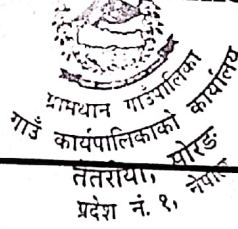 ग्रामथान गाउँपालिका
गाउँ कार्यपालिकाको कार्यालय
तेतरीया, मोरङ
प्रदेश नं. १, नेपाल